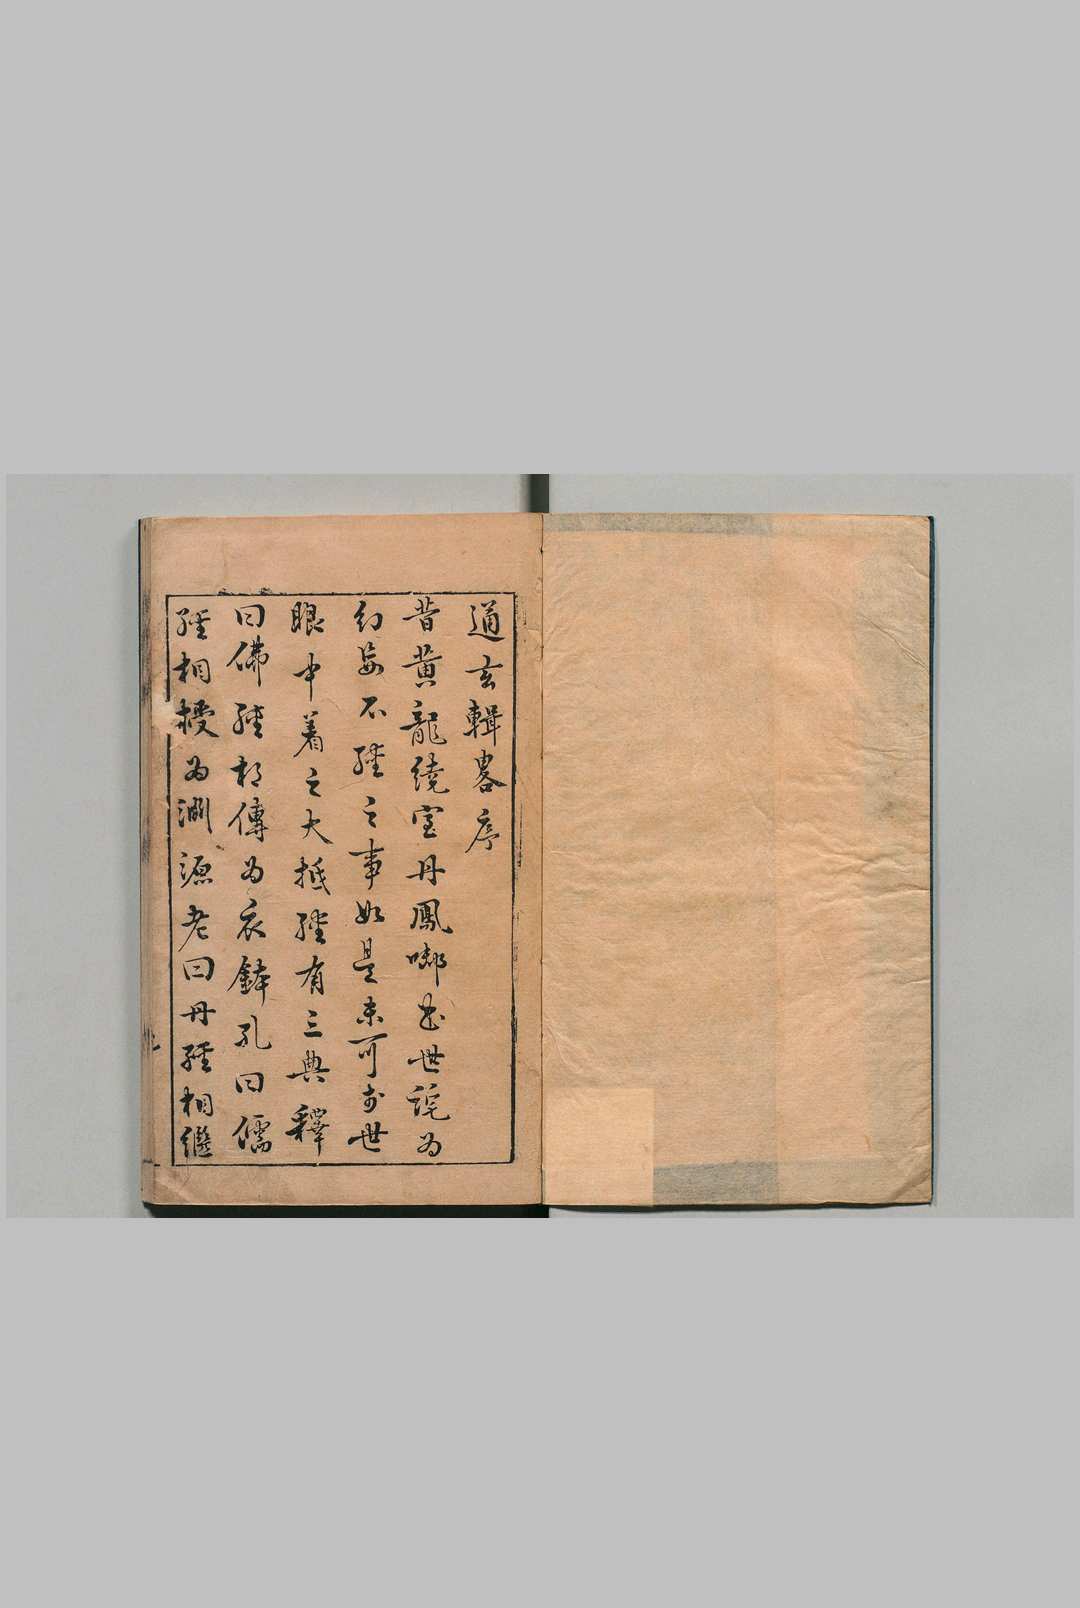 通玄輯畧序
昔黃龍繞室丹鳳啣書世詫為
幻妄不經之事如是未可與世
眼中着之大抵經有三典釋
曰佛經相傳為衣鉢孔曰儒
經相授為淵源老曰丹經相繼